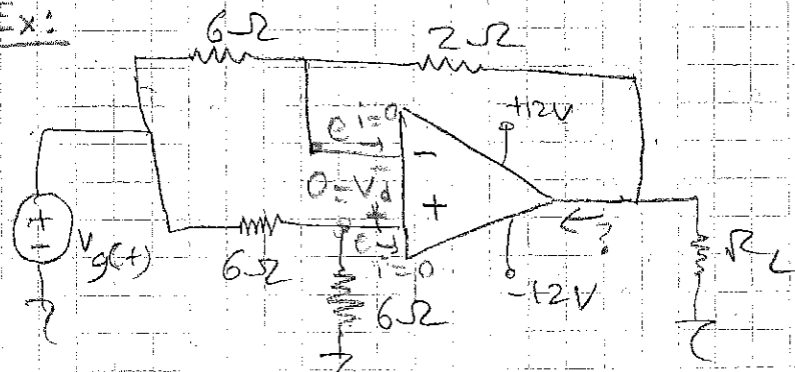 Ex:
6Ω 2Ω
e i=0 +12V
-
0=Vd
+ +
+
- vg(t)
6Ω e i=0 ?
6Ω -12V RL